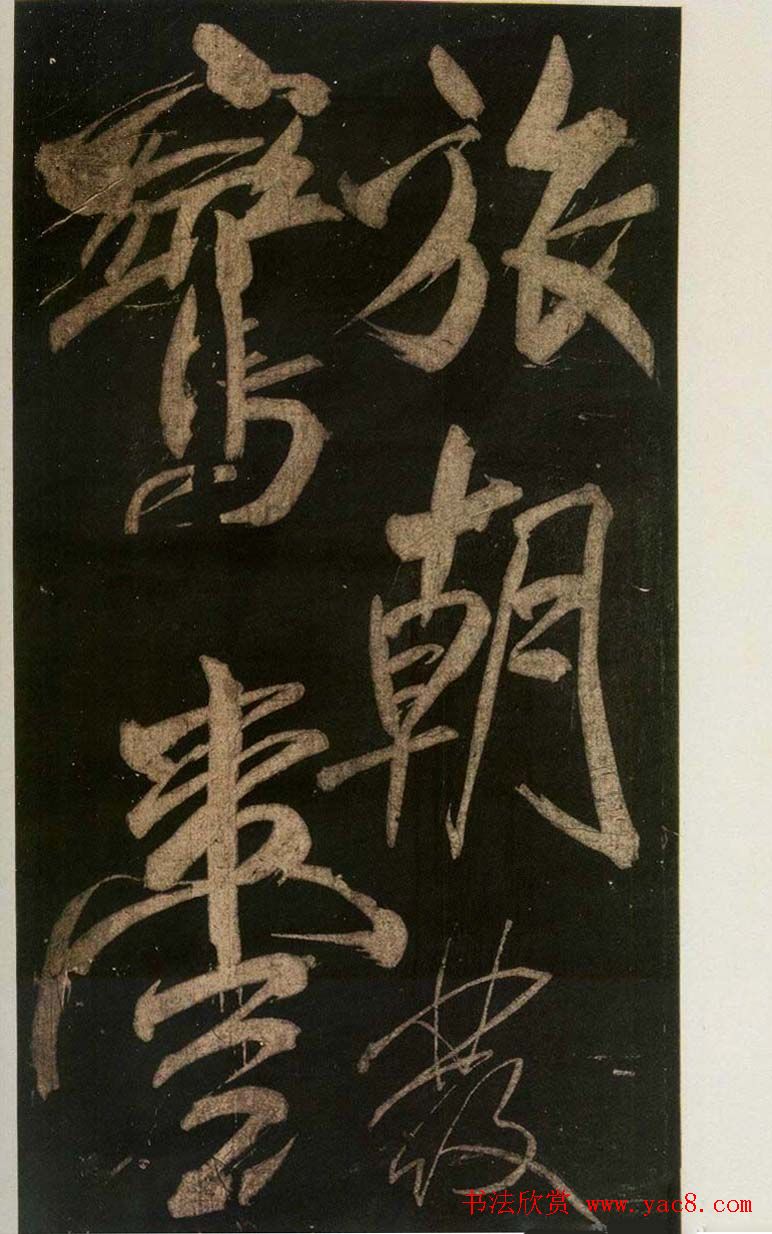 旅朝發
鸞臺
书法欣赏 www.yac8.com